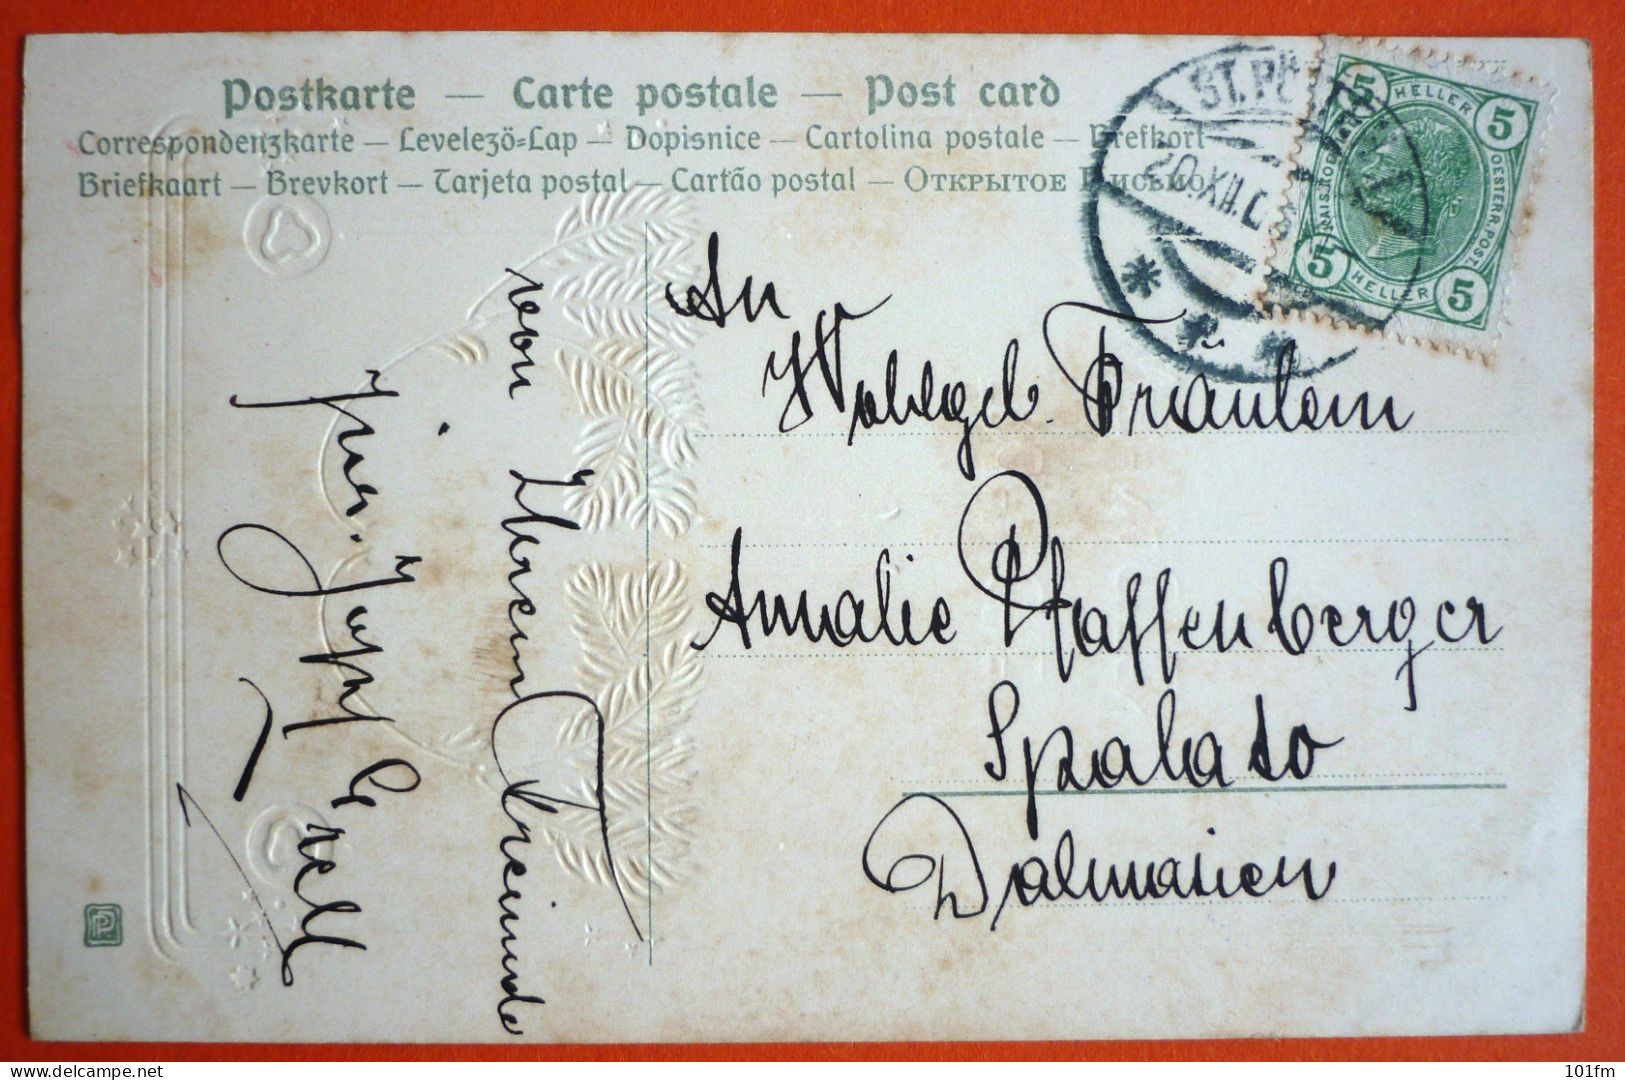 Postkarte — Carte postale — Post card
Correspondenzkarte — Levelező-Lap — Dopisnice — Cartolina postale — Brefkort
Briefkaart — Brevkort — Tarjeta postal — Cartão postal — Открытое письмо
ST. PÖ
20.XII.0
5 HELLER 5
KAIS. KOE
OESTERR. POST.
5 HELLER 5
An
Wohlgeb. Fräulein
Amalie Pfaffenberger
Spalato
Dalmatien
von Ihrem Freunde
Grell
P
101fm